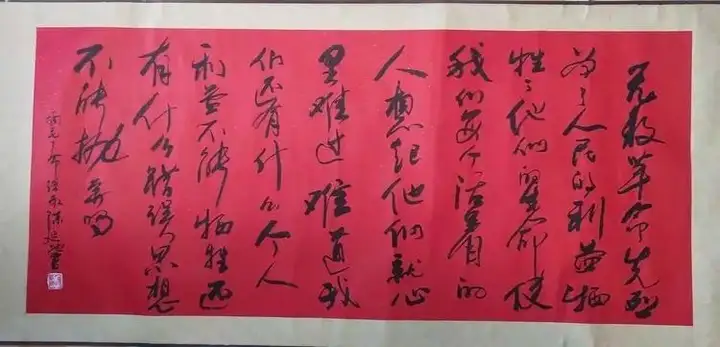 无数革命先烈
为了人民的利益牺
牲了他们的生命使
我们每个活着的
人想起他们就心
里难过难道我
们还有什么个人
利益不能牺牲还
有什么错误思想
不能抛弃吗